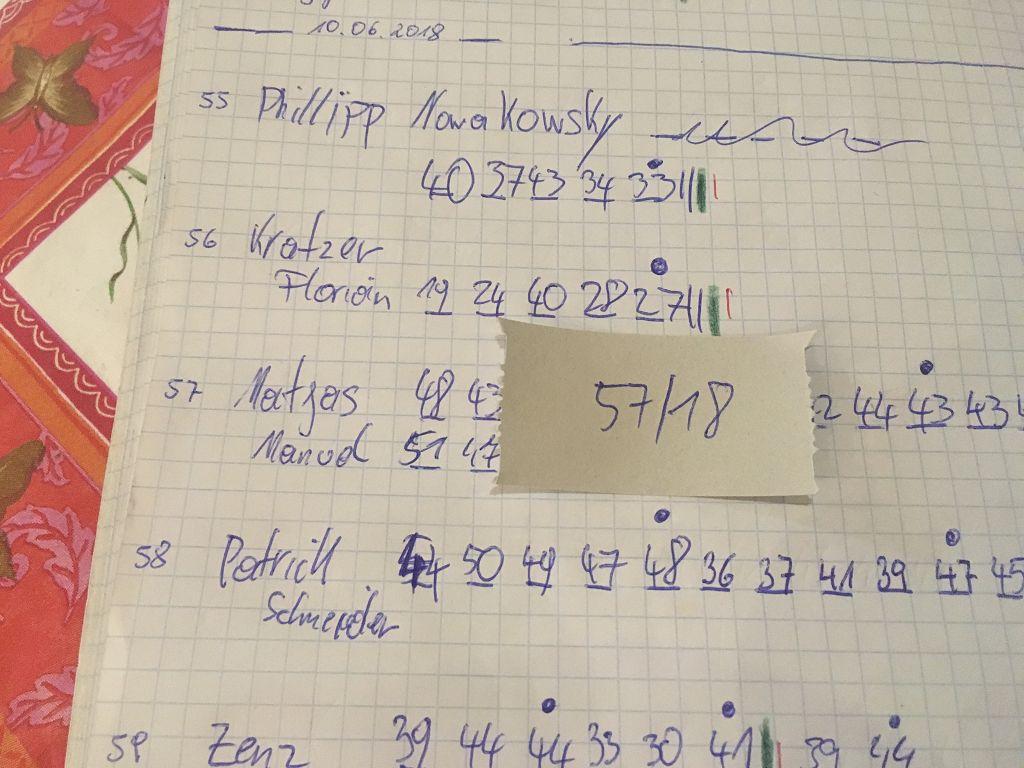 10.06.2018
55 Phillipp Nowakowsky
40 37 43 34 33
56 Kratzer
Florian 19 24 40 28 27
57 Matzas 48 43 2 44 43 43
57/18
Manuel 51 47
58 Patrick 44 50 49 47 48 36 37 41 39 47 45
Schneider
59 Zenz 39 44 44 33 30 41 39 44